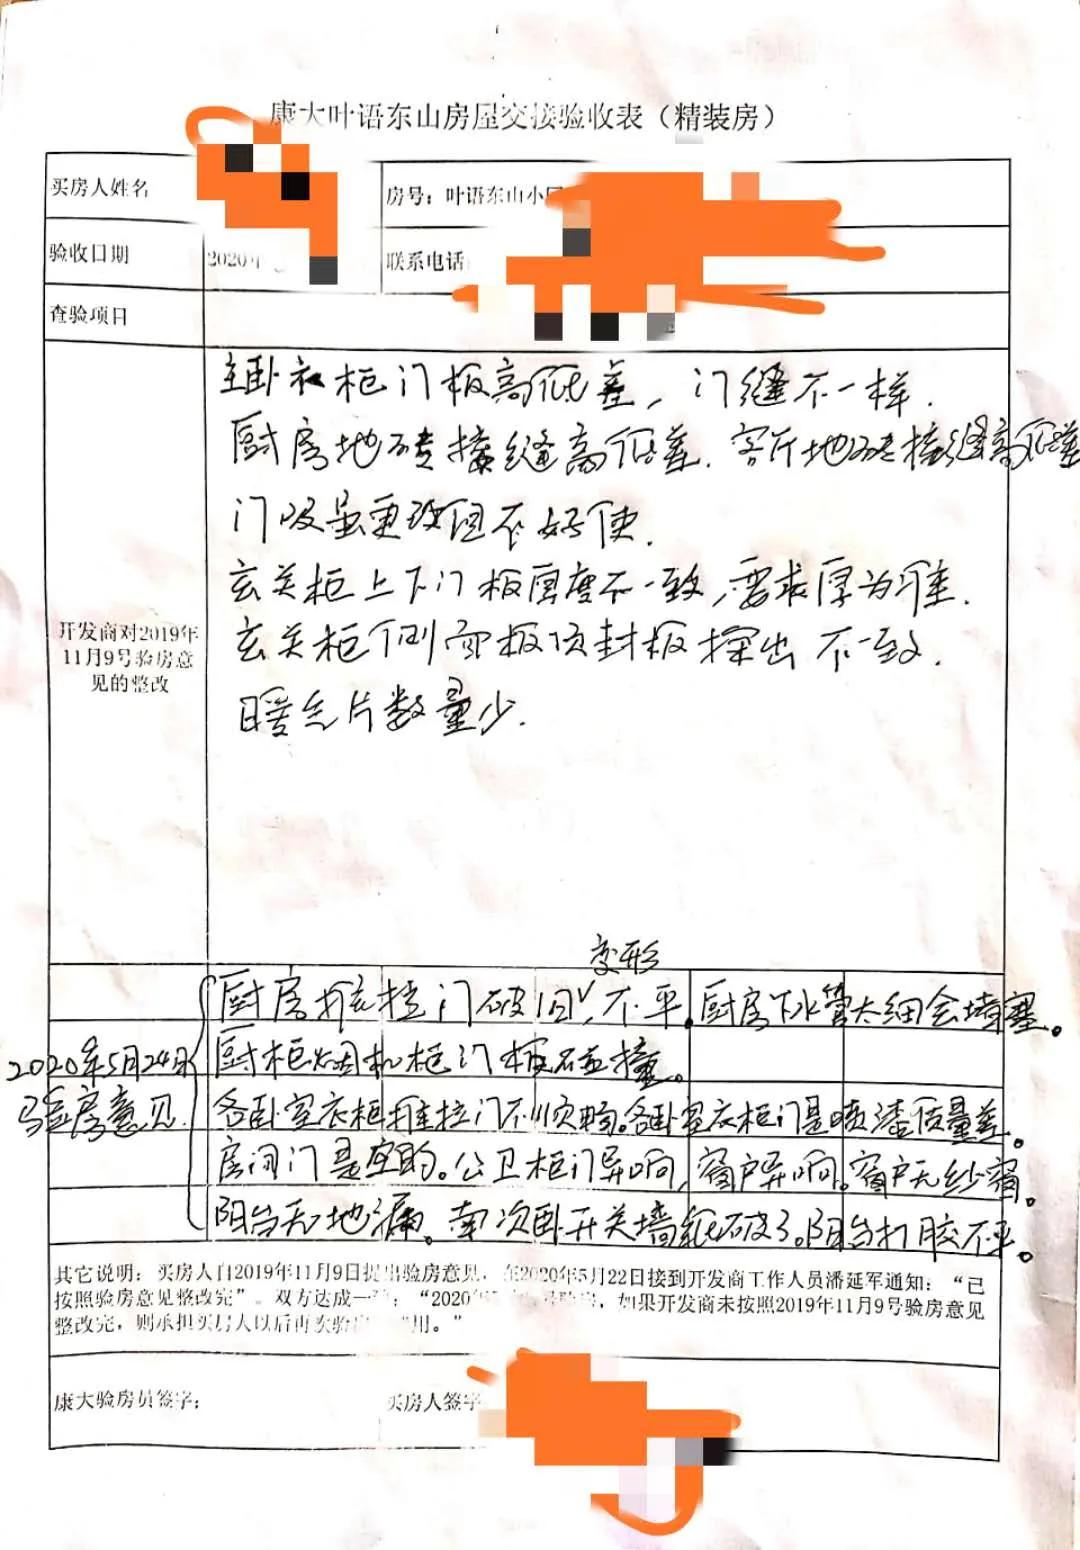 康大叶语东山房屋交接验收表（精装房）
买房人姓名
房号：叶语东山小区
验收日期
2020年
联系电话
查验项目
开发商对2019年
11月9号验房意
见的整改
主卧衣柜门板高低差，门缝不一样．
厨房地砖接缝高低差．客厅地砖接缝高低差
门吸虽更改但不好使．
玄关柜上下门板厚度不一致，要求厚为准．
玄关柜侧面板顶封板探出不一致．
暖气片数量少．
变形
厨房推拉门破旧，不平。厨房下水管太细会堵塞。
2020年5月24日
验房意见
厨柜烟机柜门板碰撞。
各卧室衣柜推拉门不顺畅。各卧室衣柜门是喷漆质量差。
房间门是空的。公卫柜门异响，窗户异响。窗户无纱窗。
阳台无地漏。南次卧开关墙纸破了。阳台打胶不平。
其它说明：买房人自2019年11月9日提出验房意见，在2020年5月22日接到开发商工作人员潘延军通知：“已
按照验房意见整改完”。双方达成一致：“2020年 ，如果开发商未按照2019年11月9号验房意见
整改完，则承担买房人以后再次验 用。”
康大验房员签字：
买房人签字